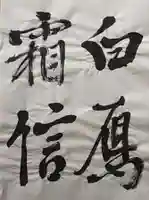 白雁
霜信